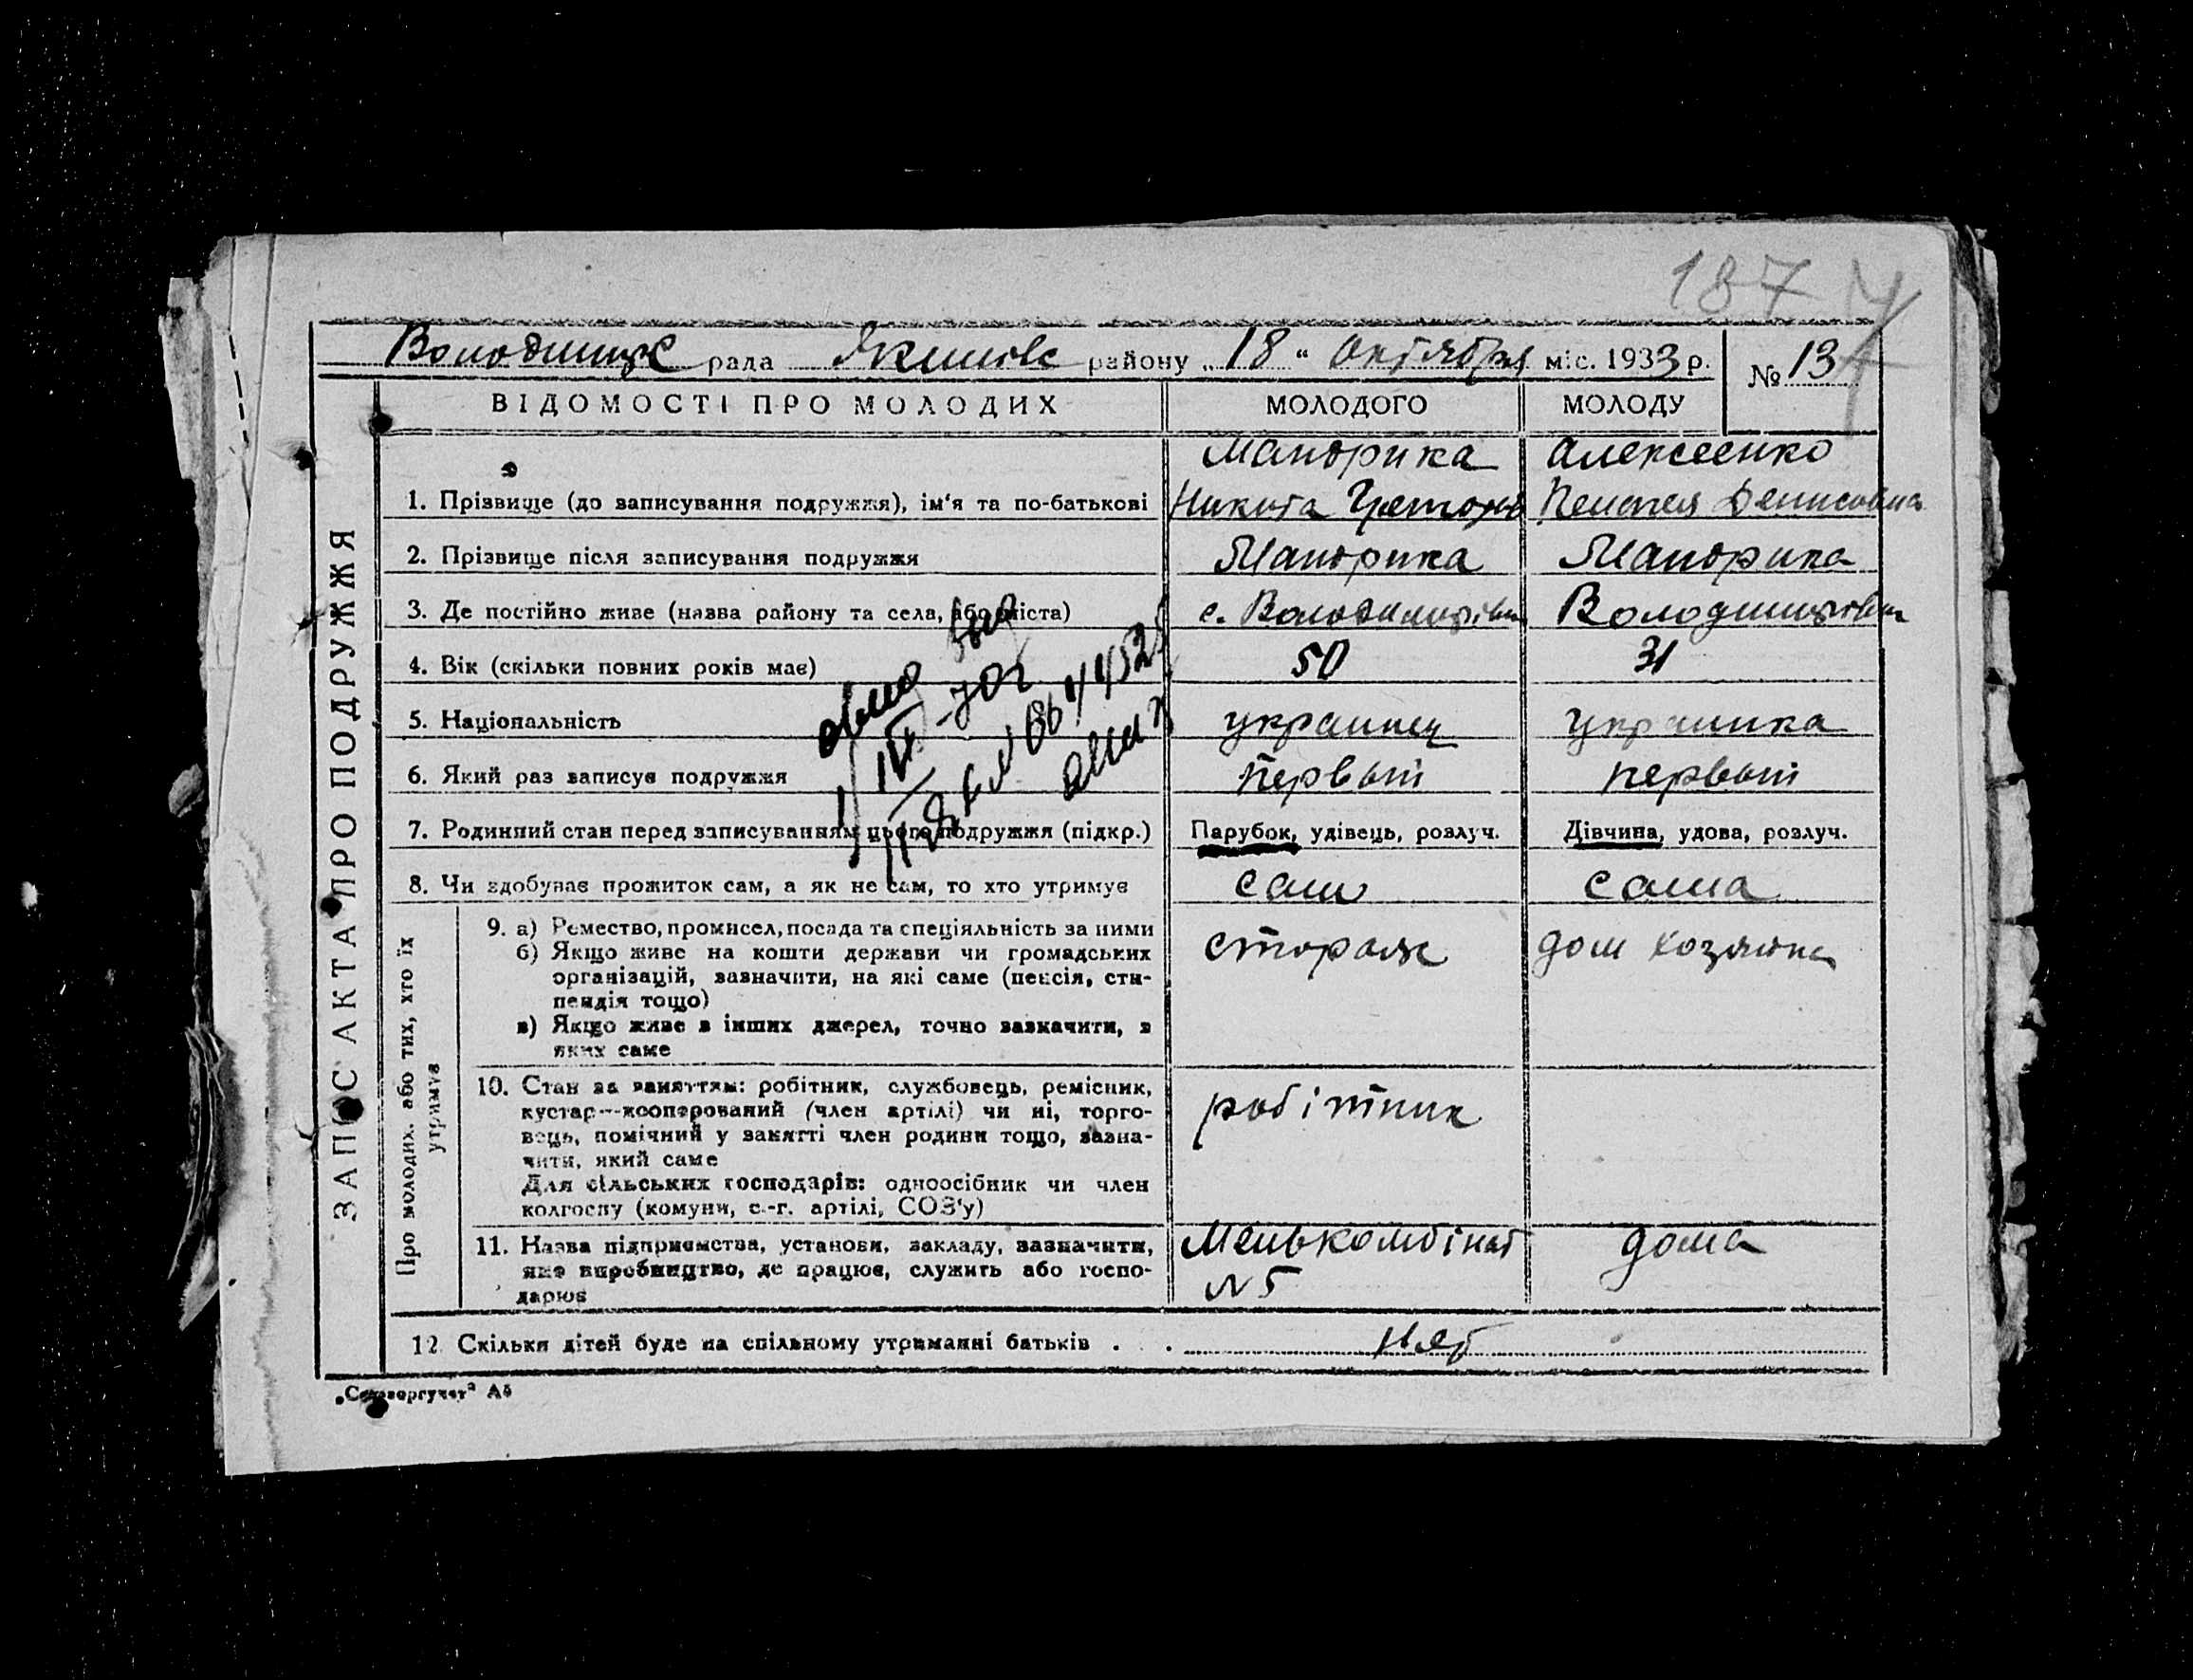 187
рада району „ 18 “ Октября міс. 1933 р.
№ 13
ЗАПОС АКТА ПРО ПОДРУЖЖЯ
ВІДОМОСТІ ПРО МОЛОДИХ МОЛОДОГО МОЛОДУ
Алексеенко
1. Прізвище (до записування подружжя), ім‘я та по-батькові Никита Денисовна
2. Прізвище після записування подружжя
3. Де постійно живе (назва району та села, або міста) с.
4. Вік (скільки повних років має) 50 31
5. Національність украинец украинка
6. Який раз записує подружжя первый первый
7. Родинний стан перед записуванням цього подружжя (підкр.) Парубок, удівець, розлуч. Дівчина, удова, розлуч.
8. Чи здобуває прожиток сам, а як не сам, то хто утримує сам сама
Про молодих, або тих, хто їх утримує
9. а) Ремество, промисел, посада та спеціяльність за ними сторож дом хозяйка
б) Якщо живе на кошти держави чи громадських
організацій, зазначити, на які саме (пенсія, сти-
пендія тощо)
в) Якщо живе з інших джерел, точно зазначити, з
яких саме
10. Стан за заняттям: робітник, службовець, ремісник, робітник
кустар—кооперований (член артілі) чи ні, торго-
вець, помічний у занятті член родини тощо, зазна-
чити, який саме
Для сільських господарів: одноосібник чи член
колгоспу (комуни, с.-г. артілі, СОЗ‘у)
11. Назва підприємства, установи, закладу, зазначити, дома
яке виробництво, де працює, служить або госпо- N 5
дарює
12. Скільки дітей буде на спільному утриманні батьків . . .